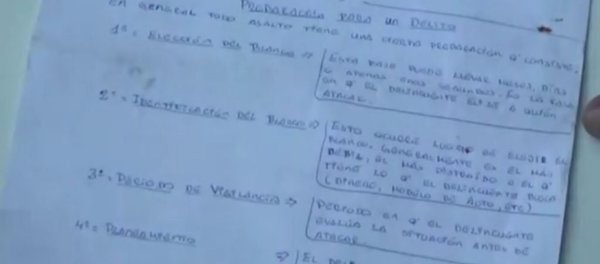 PREPARACIÓN PARA UN DELITO
EN GENERAL TODO ASALTO TIENE UNA CIERTA PREPARACIÓN Q' CONSISTE:
1º = ELECCIÓN DEL BLANCO => ESTA FASE PUEDE LLEVAR MESES, DÍAS
O APENAS UNOS SEGUNDOS. ES LA FASE
EN Q' EL DELINCUENTE ELIJE A QUIÉN
ATACAR.
2º = IDENTIFICACIÓN DEL BLANCO => ESTO OCURRE LUEGO DE ELEJIR EL
BLANCO, GENERALMENTE ES EL MÁS
DÉBIL, EL MÁS DISTRAÍDO O EL Q'
TIENE LO Q' EL DELINCUENTE BUSCA
(DINERO, MODELO DE AUTO, ETC)
3º = PERÍODO DE VIGILANCIA => PERÍODO EN Q' EL DELINCUENTE
EVALÚA LA SITUACIÓN ANTES DE
ATACAR.
4º = PLANEAMIENTO
EL